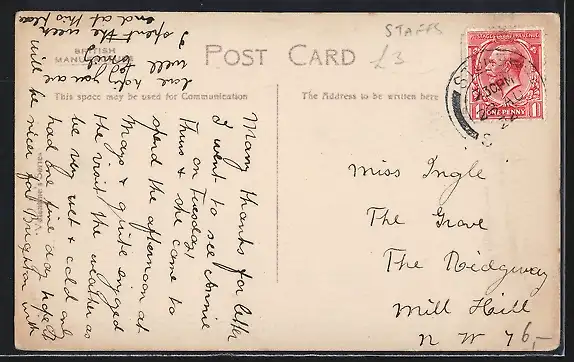 STAFFS
£3
BRITISH
MANUFACTURE
POST CARD
This space may be used for Communication
The Address to be written here
POSTAGE REVENUE
ONE PENNY
Many thanks for letter
I went to see Connie
on Tuesday
Thurs & she came to
spend the afternoon at
Mayo & quite enjoyed
the visit the weather as
be very wet & cold only
had one fine day hope it
will be nicer for Brighton with
love hope you are
well
I spent the week
end at this place
Miss Ingle
The Grove
The Ridgway
Mill Hill
N W 7
6,-